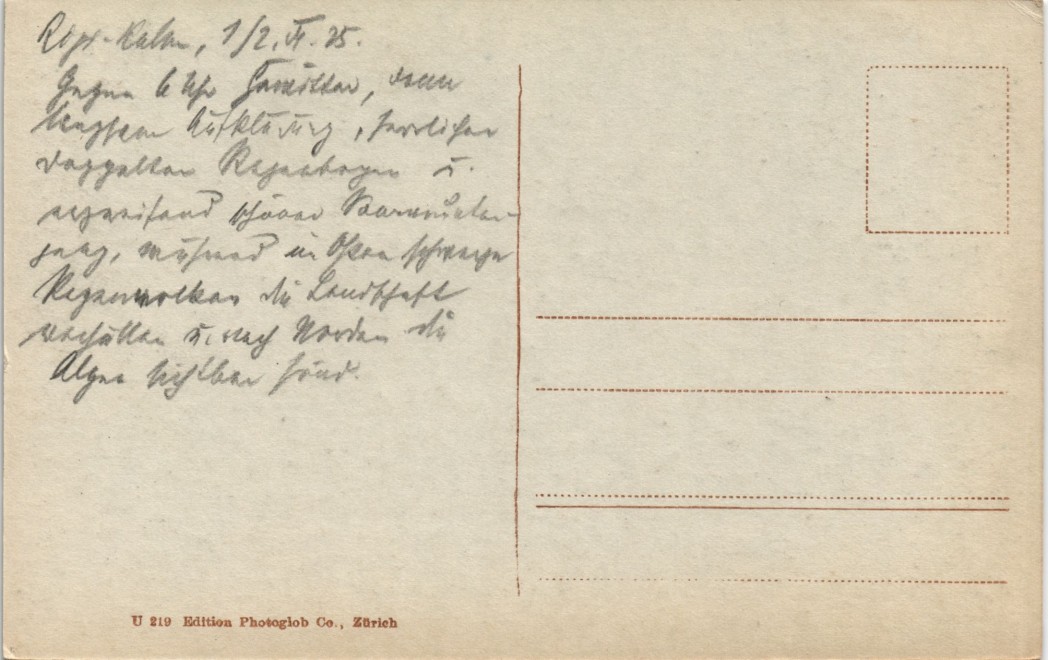 Rigi-Kulm, 1/2. VI. 25.
Gegen 6 Uhr Gewitter, dann
Aufklärung, herrlicher
doppelter Regenbogen u.
schöner Sonnenunter-
gang, während im Osten schwarze
Regenwolken die Landschaft
verhüllen u. nach Norden die
Alpen sichtbar sind.
U 219 Edition Photoglob Co., Zürich